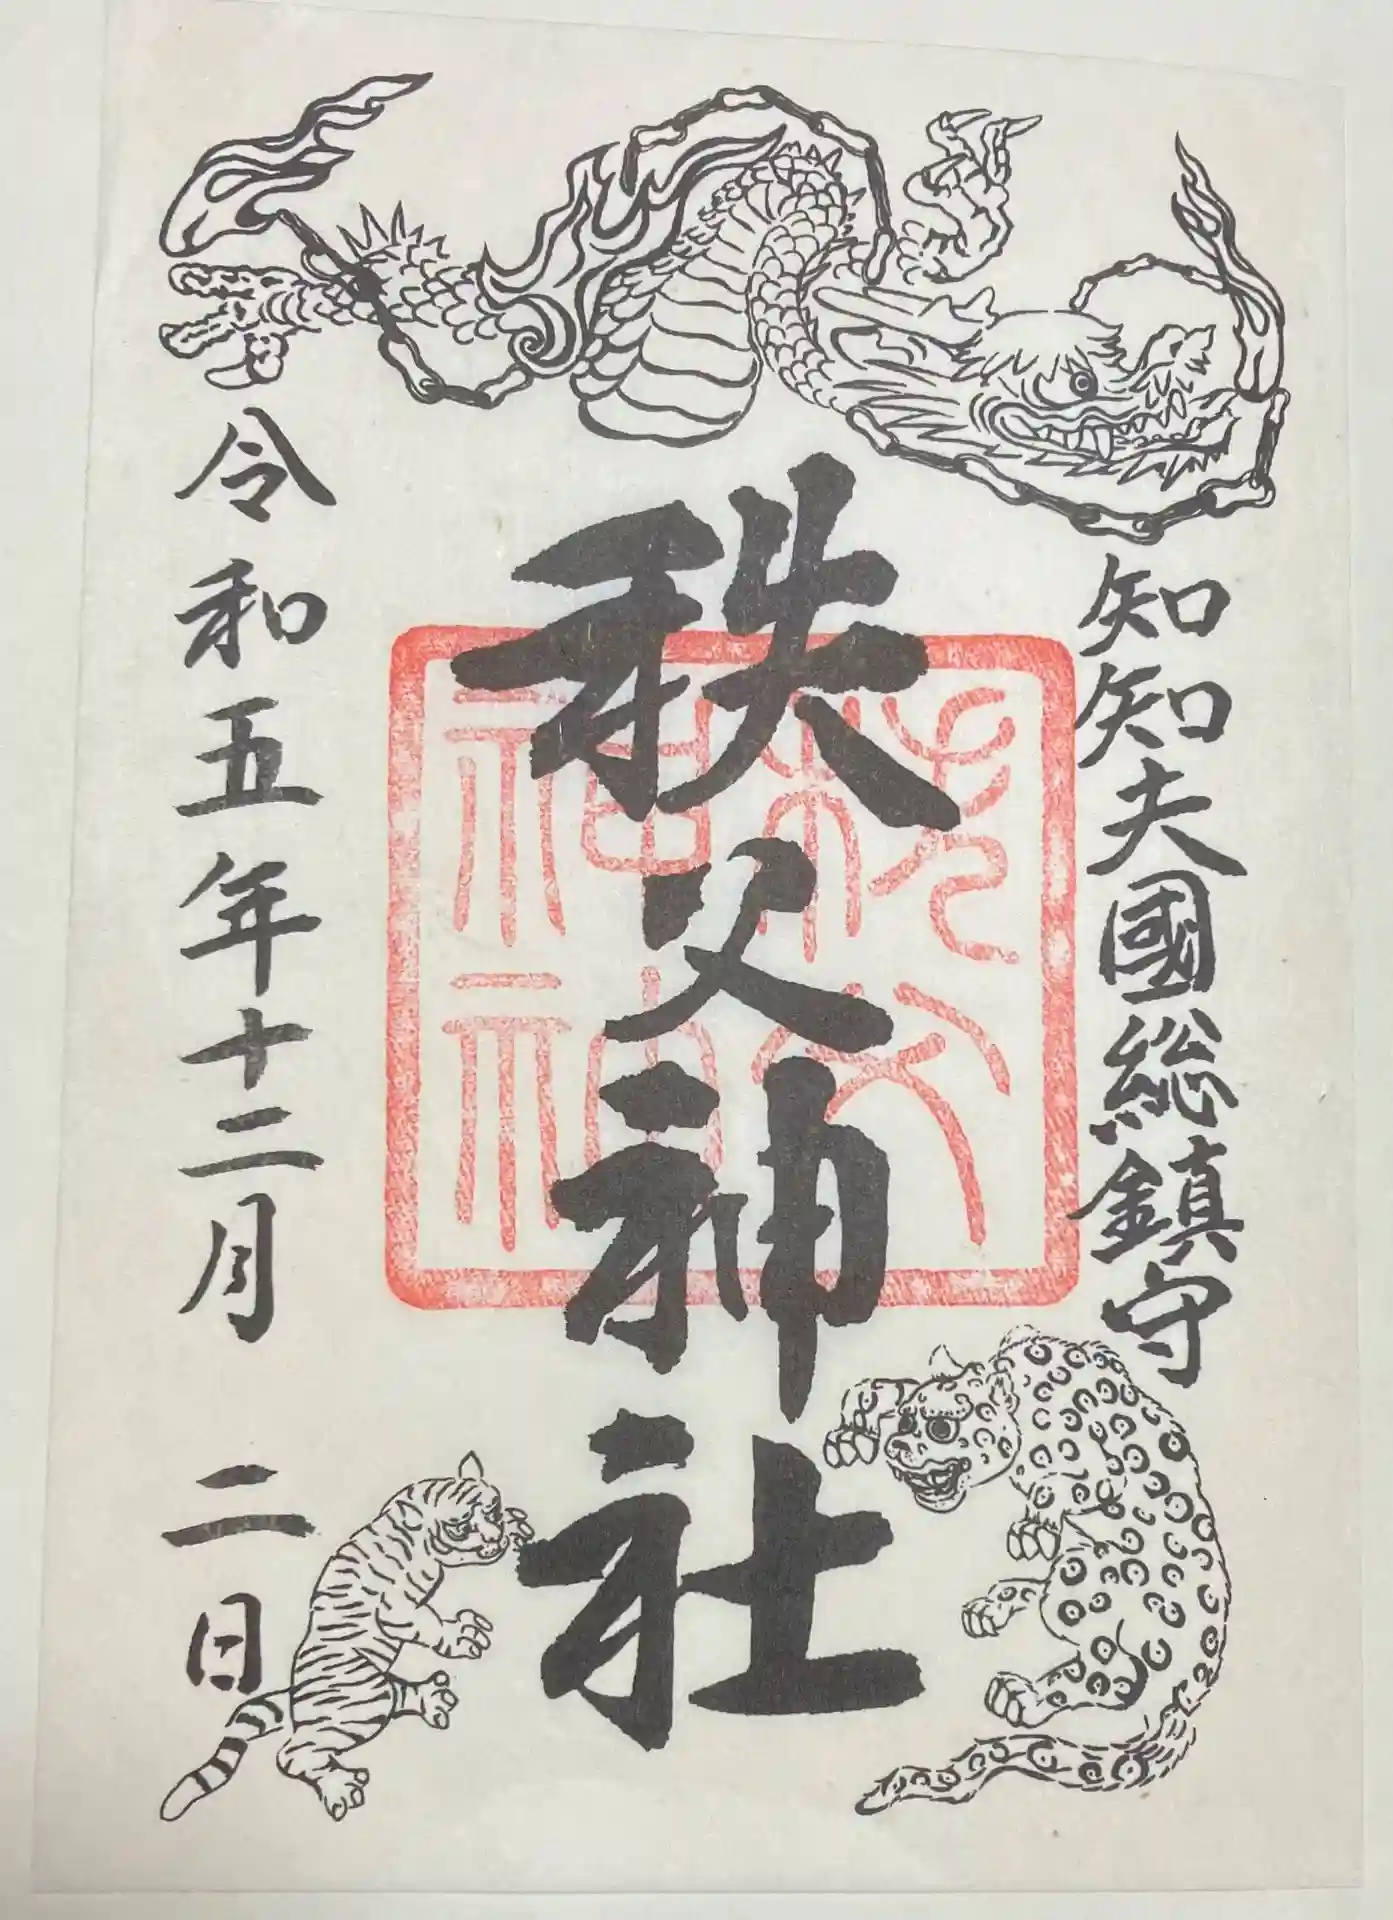 知知夫國総鎮守
秩父神社
令和五年十二月二日
秩父
神社